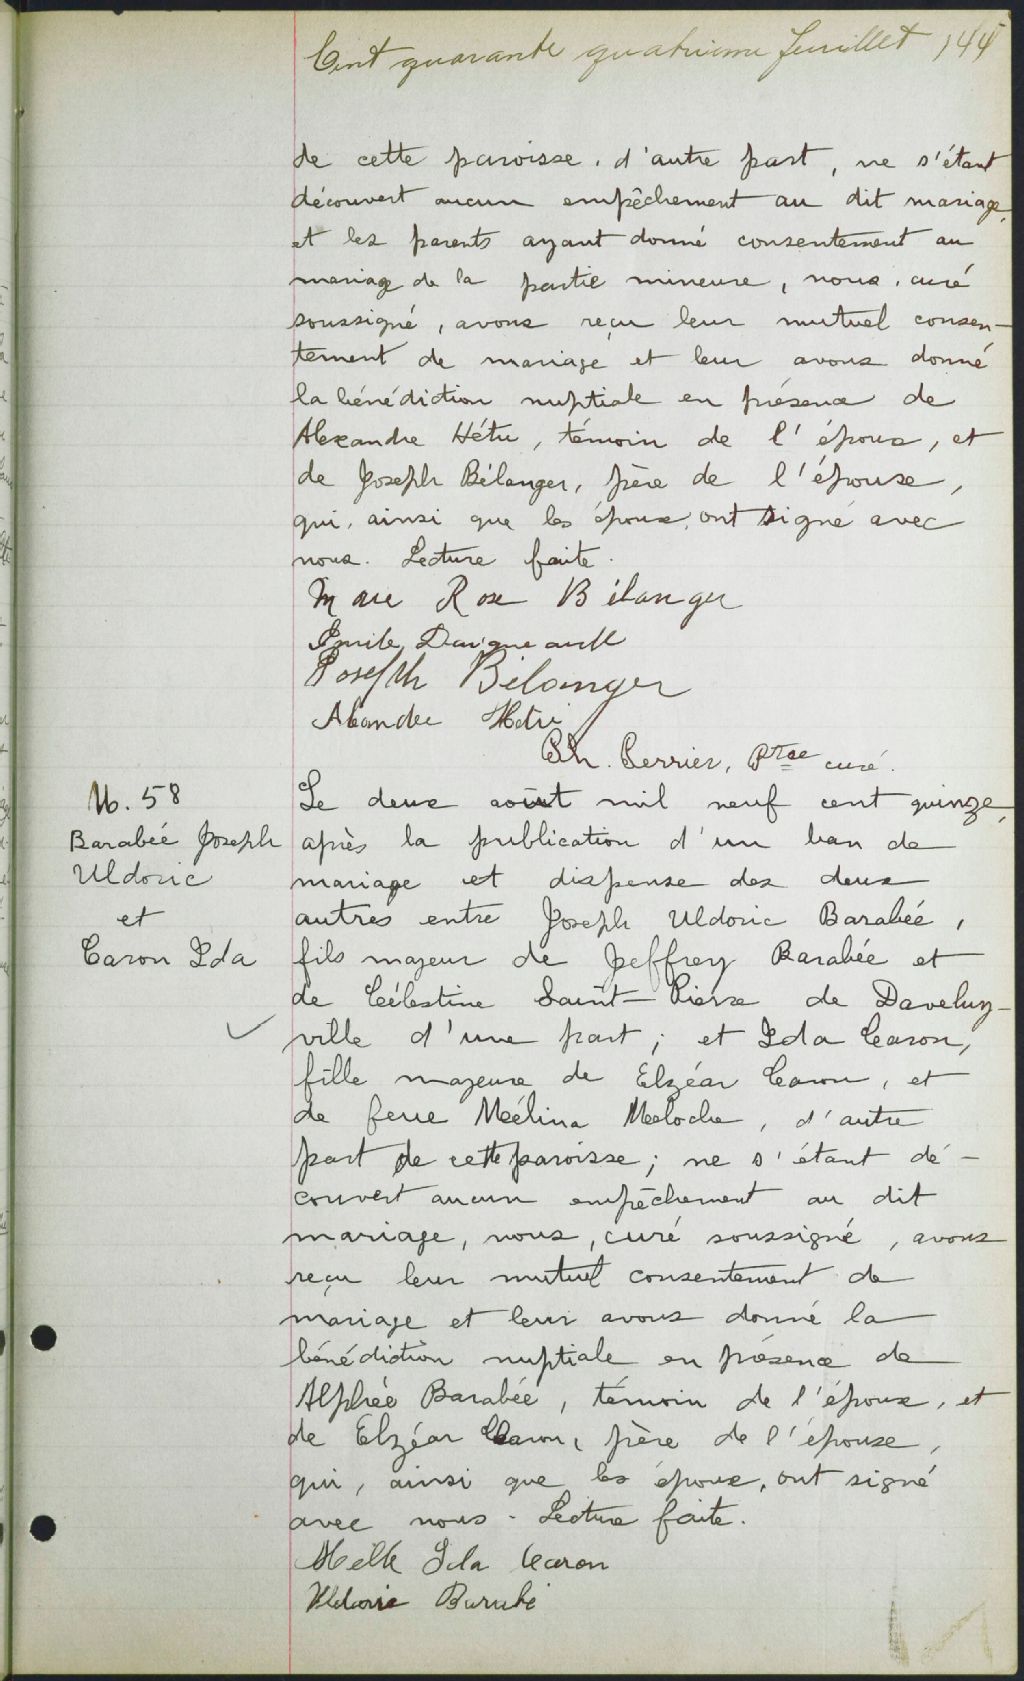 Cent quarante quatrième feuillet 144
de cette paroisse, d'autre part, ne s'étant
découvert aucun empêchement au dit mariage,
et les parents ayant donné consentement au
mariage de la partie mineure, nous, curé
soussigné, avons reçu leur mutuel consen-
tement de mariage et leur avons donné
la bénédiction nuptiale en présence de
Alexandre Hétu, témoin de l'époux, et
de Joseph Bélanger, père de l'épouse,
qui, ainsi que les époux, ont signé avec
nous. Lecture faite.
Marie Rose Bélanger
Emile Daigneault
Joseph Bélanger
Alexandre Hetu
Ph. Perrier, Ptre curé.
M. 58
Barabéé Joseph
Uldoric
et
Caron Ida
Le deux août mil neuf cent quinze,
après la publication d'un ban de
mariage et dispense des deux
autres entre Joseph Uldoric Barabéé,
fils majeur de Jeffrey Barabée et
de Célestine Saint-Pierre de Daveluy-
ville d'une part; et Ida Caron,
fille majeure de Elzéar Caron, et
de feue Méélina Meloche, d'autre
part de cette paroisse; ne s'étant dé-
couvert aucun empêchement au dit
mariage, nous, curé soussigné, avons
reçu leur mutuel consentement de
mariage et leur avons donné la
bénédiction nuptiale en présence de
Alphée Barabée, témoin de l'époux, et
de Elzéar Caron, père de l'épouse,
qui, ainsi que les époux, ont signé
avec nous. Lecture faite.
Melle Ida Caron
Uldoric Barabé